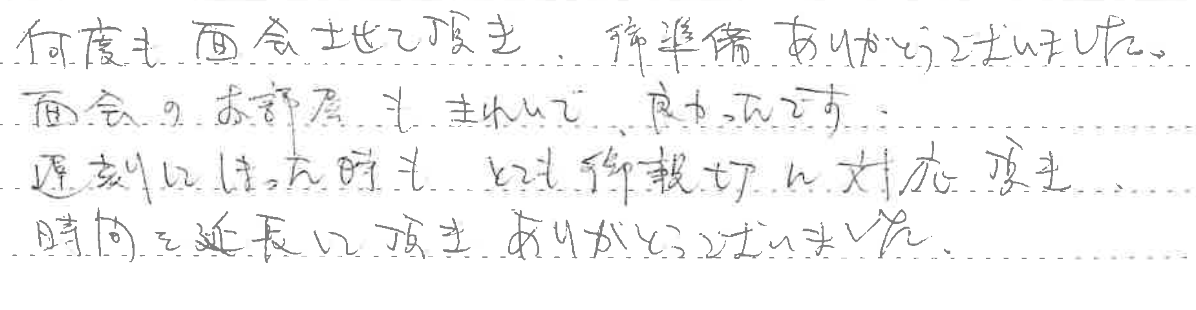 何度も面会させて頂き、御準備ありがとうございました。
面会のお部屋もきれいで、良かったです。
遅刻してしまった時もとても御親切に対応頂き、
時間を延長して頂きありがとうございました。